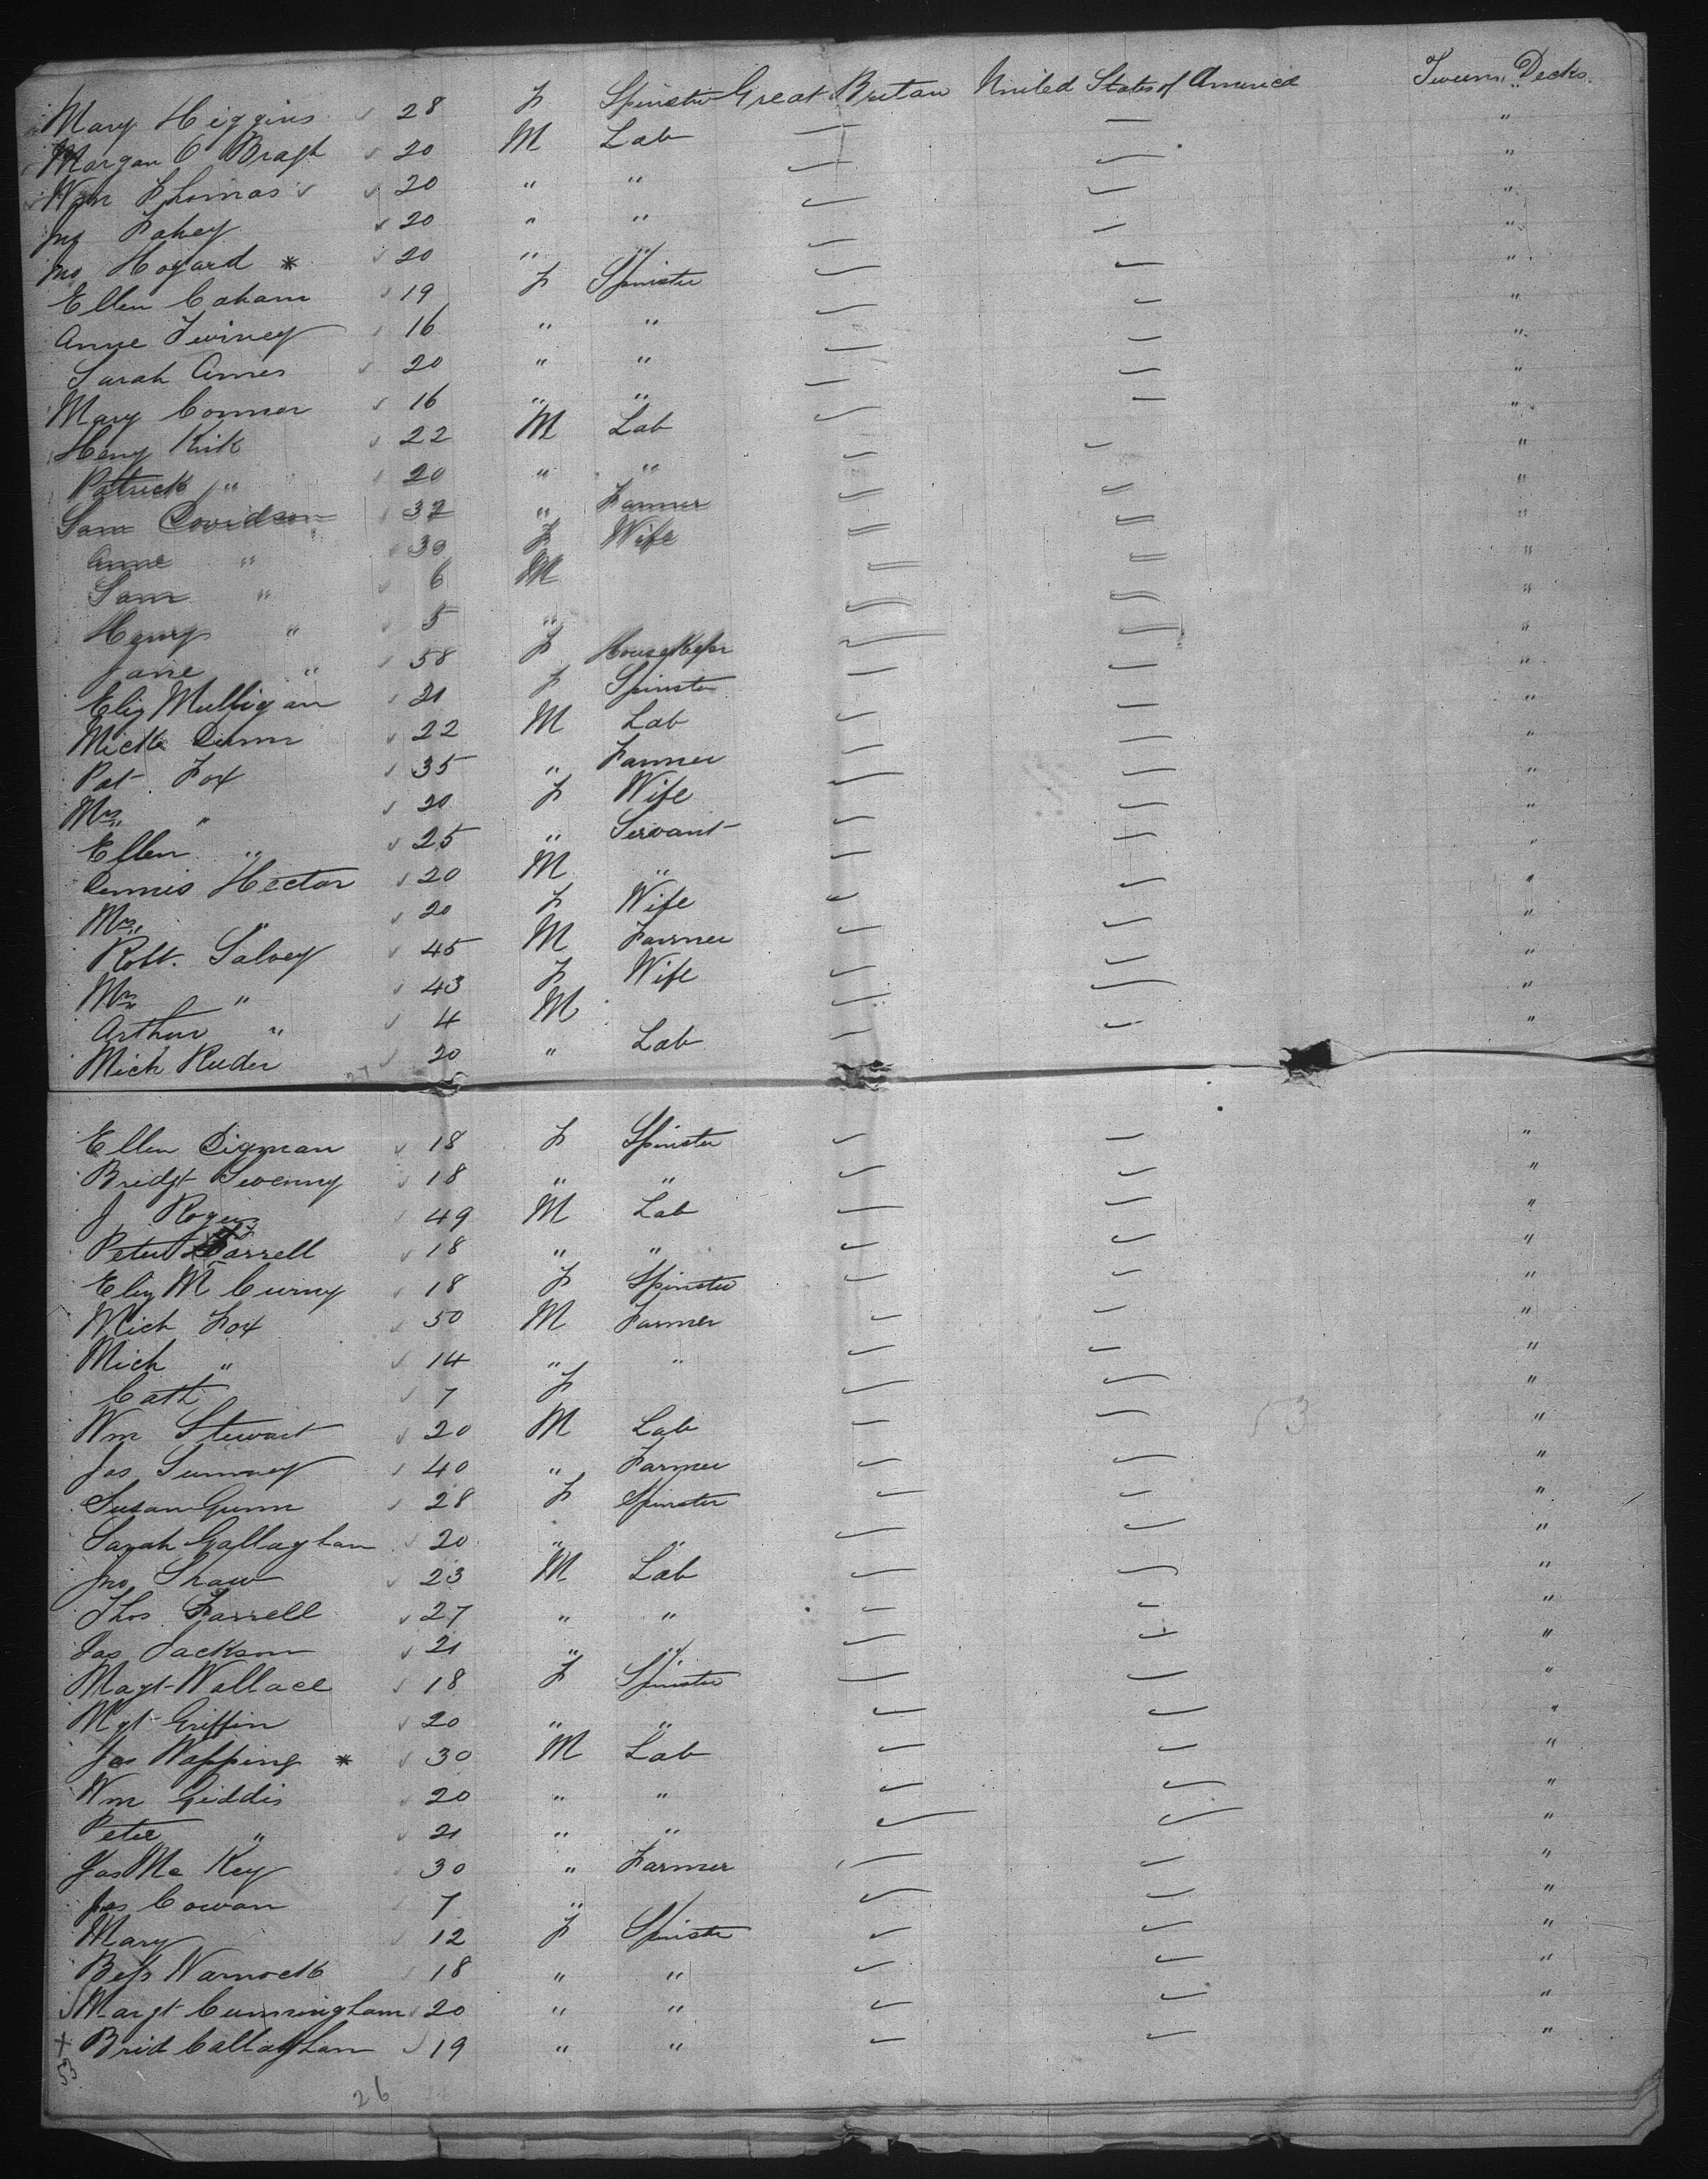 Mary Higgins 28 F Spinster Great Britan United States of America Tween Decks
Morgan O Bragh 20 M Lab — — "
Wm Thomas 20 " " — — "
Jno Fahey 20 " " — — "
Jno Hogard * 20 " " — — "
Ellen Caham 19 F Spinster — — "
Anne Twiney 16 " " — — "
Sarah Ames 20 " " — — "
Mary Conner 16 " " — — "
Heny Kirk 22 M Lab — — "
Patrick " 20 " " — — "
Sam Davidson 32 " Farmer — — "
Anne " 30 F Wife — — "
Sam " 6 M — — "
Henry " 5 " — — "
Jane " 58 F HouseKepr — — "
Eliz Mulligan 21 F Spinster — — "
Mick Dunn 22 M Lab — — "
Pat Fox 35 " Farmer — — "
Mrs " 20 F Wife — — "
Ellen " 25 " Servant — — "
Dennis Hector 20 M " — — "
Mrs " 20 F Wife — — "
Robt. Salvey 45 M Farmer — — "
Mrs " 43 F Wife — — "
Arthur " 4 M — — "
Mich Ruder 20 " Lab — — "
27
Ellen Digman 18 F Spinster — — "
Bridgt Swenny 18 " " — — "
J Rogers 49 M Lab — — "
Peter Farrell 18 " " — — "
Eliz Mc Curny 18 F Spinster — — "
Mich Fox 50 M Farmer — — "
Mich " 14 " " — — "
Cath 7 F — — "
Wm Stewart 20 M Lab — — "
53
Jas Sumney 40 " Farmer — — "
Susan Gunn 28 F Spinster — — "
Sarah Gallaghan 20 " " — — "
Jno Shaw 23 M Lab — — "
Thos Farrell 27 " " — — "
Jas Jackson 21 " " — — "
Magt Wallace 18 F Spinster — — "
Mgt Griffin 20 " " — — "
Jas Wapping * 30 M Lab — — "
Wm Giddis 20 " " — — "
Peter " 21 " " — — "
Jas Mc Key 30 " Farmer — — "
Jas Cowan 7 " — — "
Mary 12 F Spinster — — "
Bess Warnock 18 " " — — "
Margt Cunningham 20 " " — — "
+ Brid Callaghan 19 " " — — "
53
26